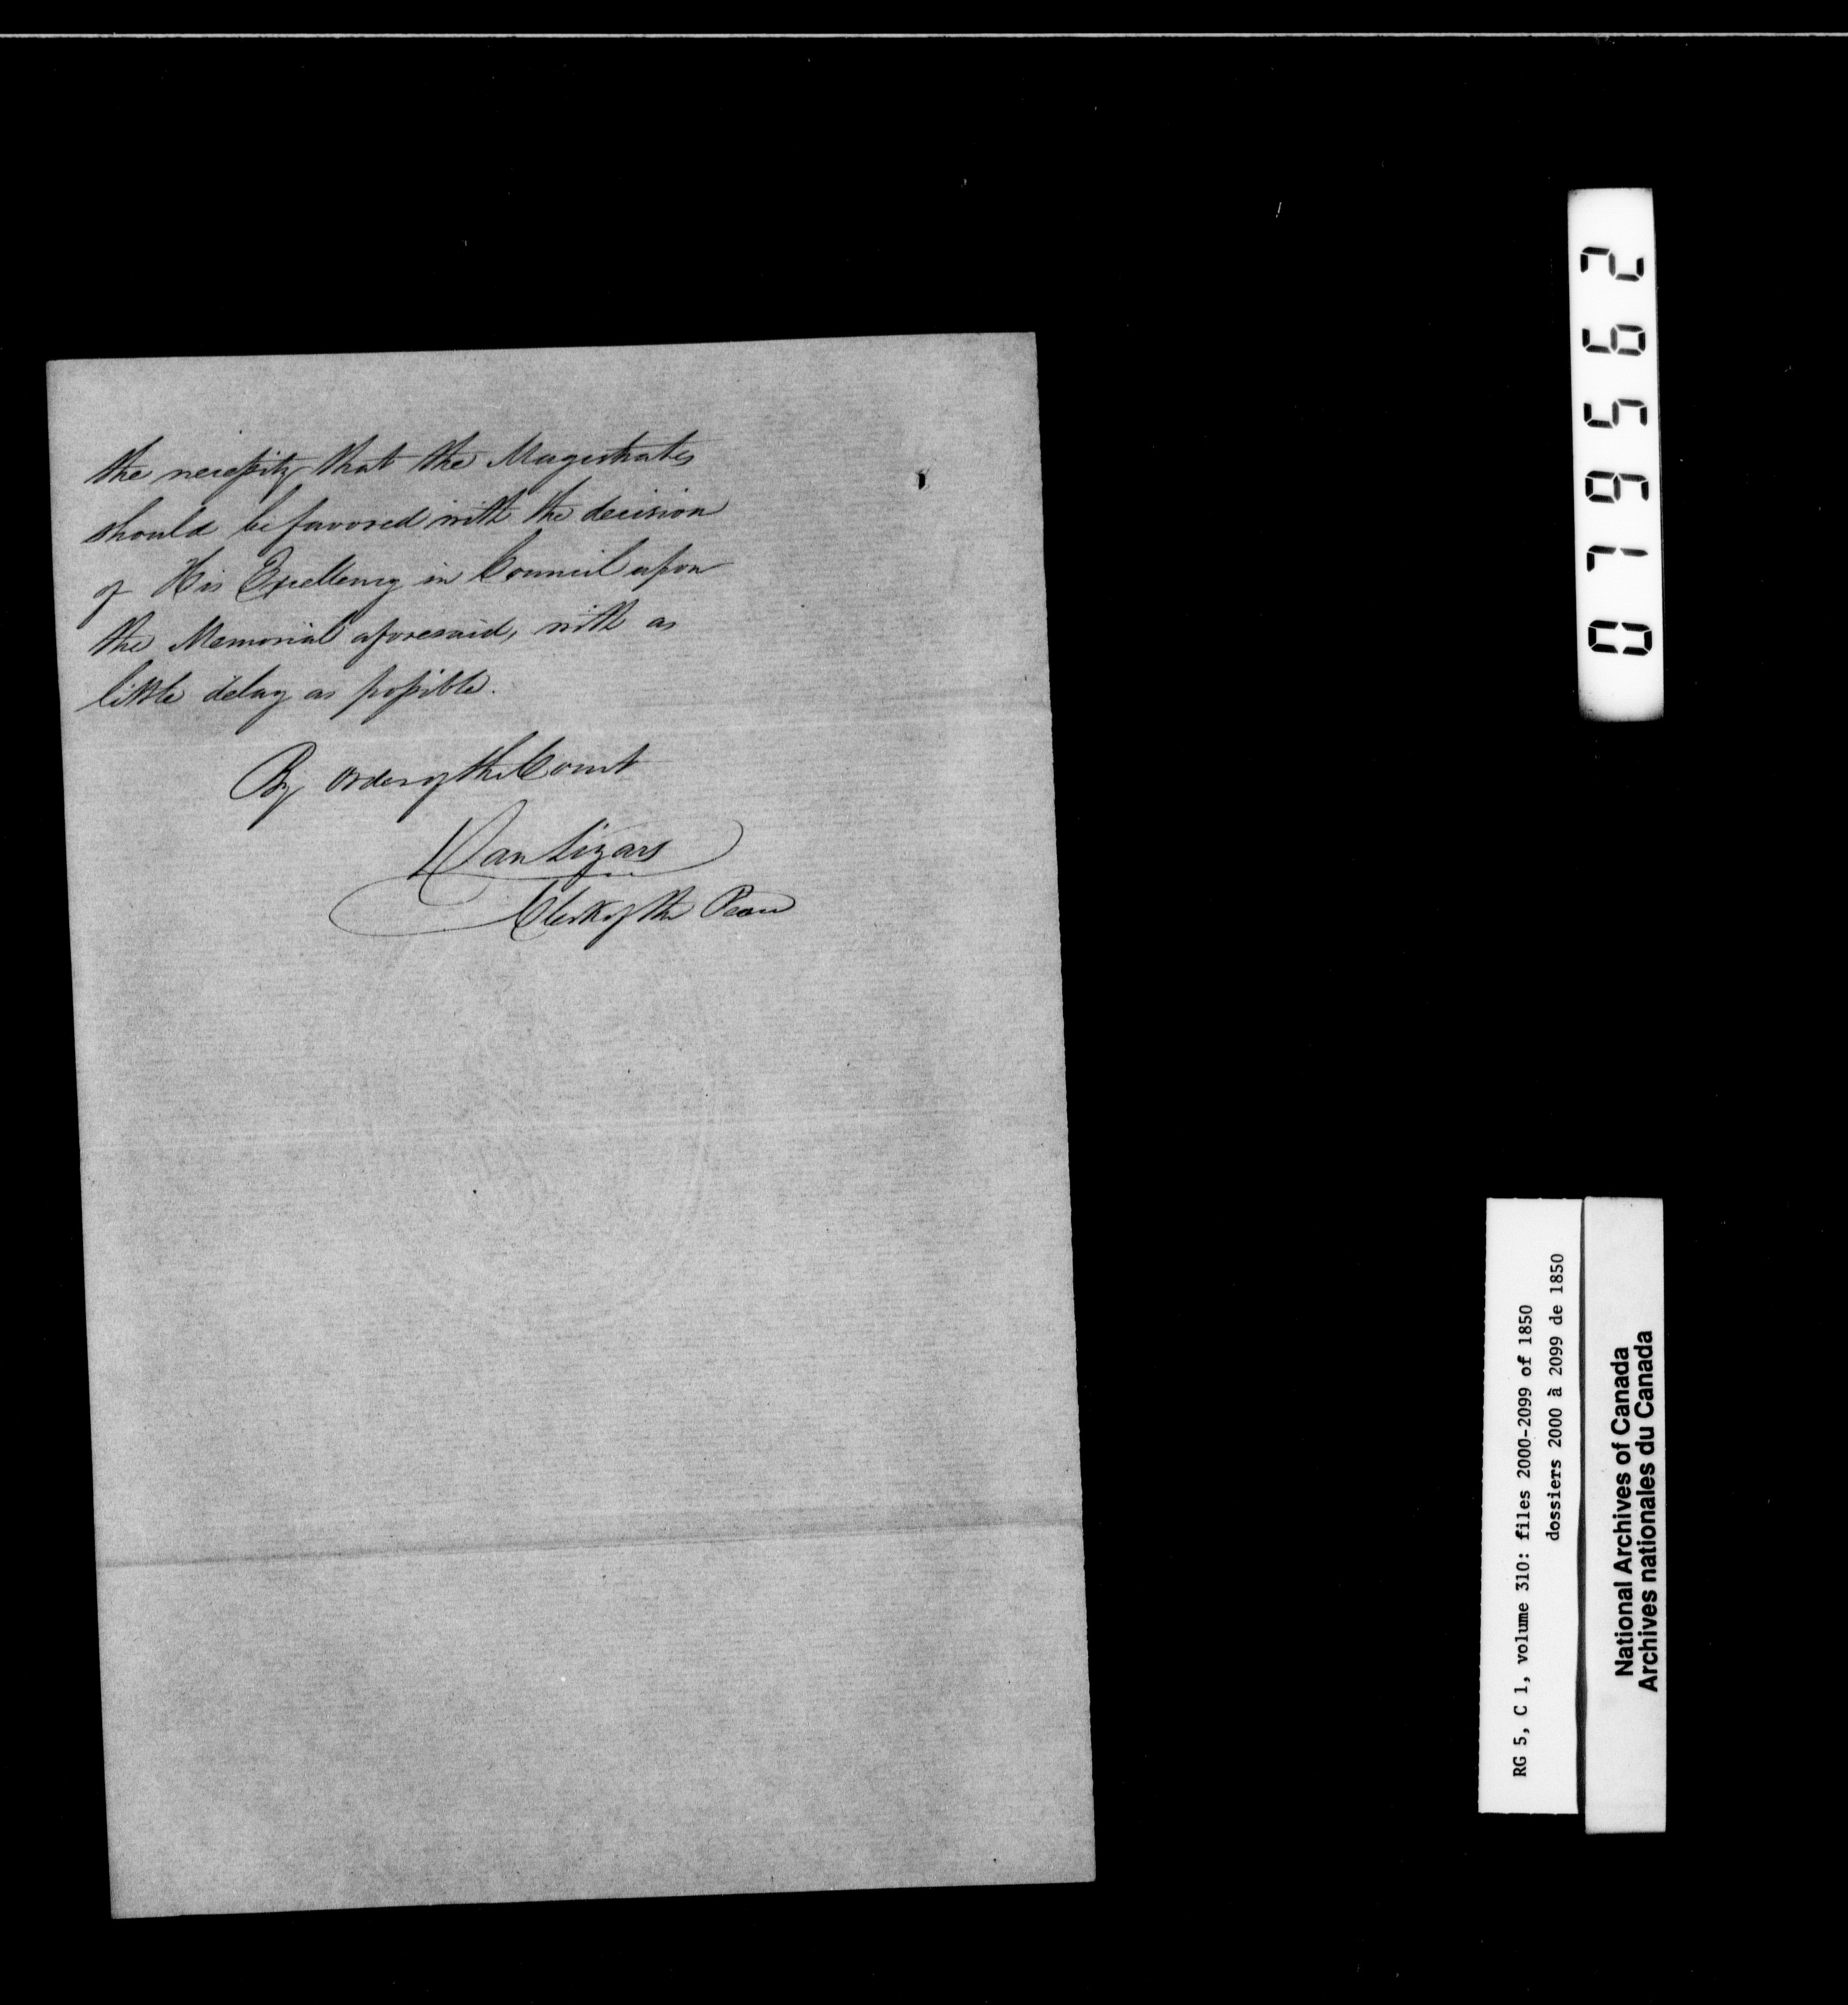 the necessity that the Magistrates
should be favored with the decision
of His Excellency in Council upon
the Memorial aforesaid, with as
little delay as possible.
By order of the Court
Dan Lizars
Clerk of the Peace
079562
RG 5, C 1, volume 310: files 2000-2099 of 1850
dossiers 2000 à 2099 de 1850
National Archives of Canada
Archives nationales du Canada